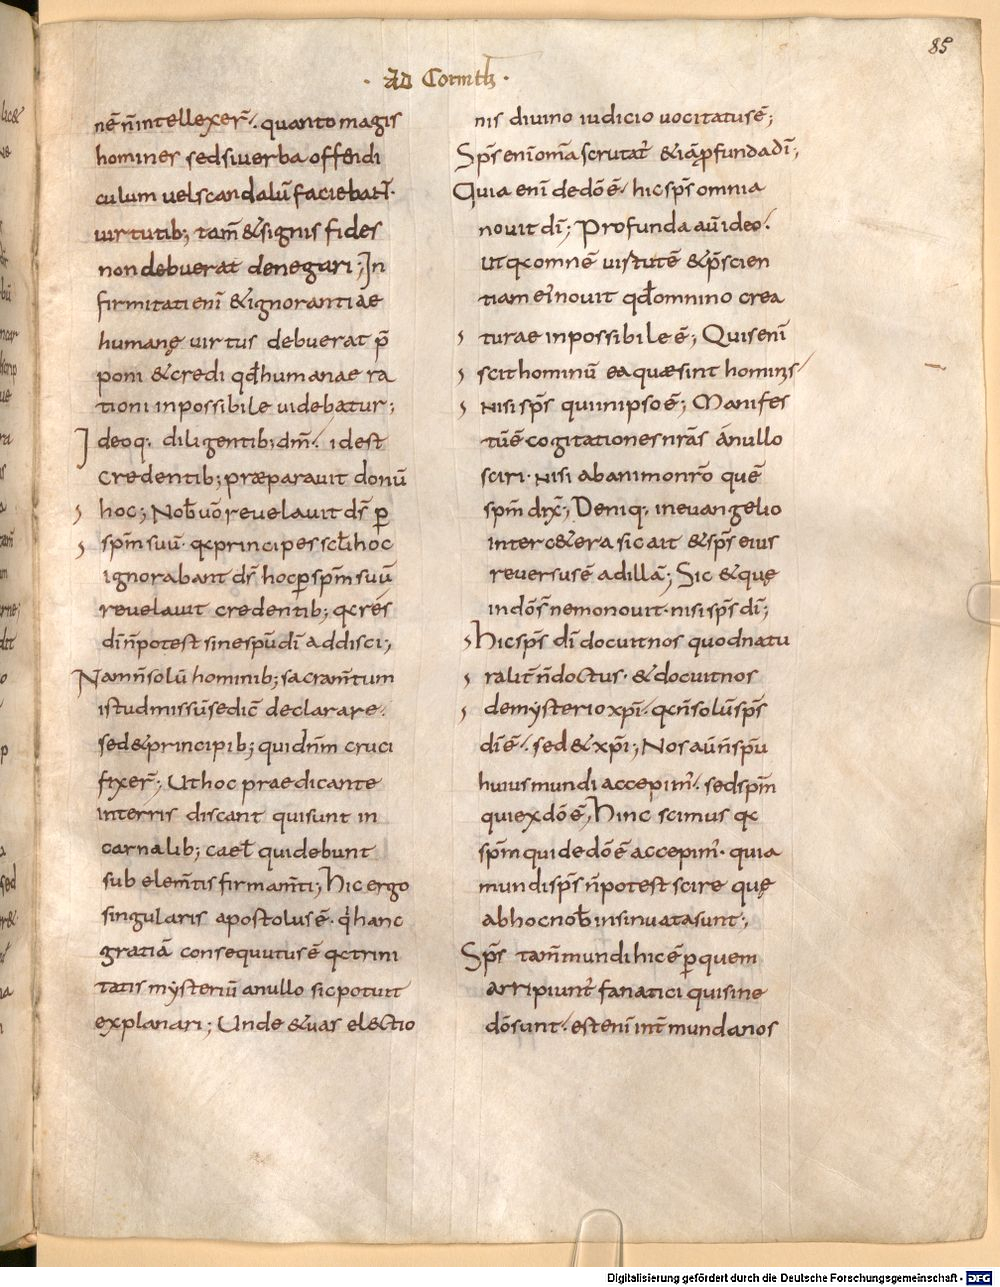 85
· AD Corinth ·
nē n̄ intellexer̄. quanto magis
homines sed si uerba offendi
culum uel scandalū faciebant̄.
uirtutib; tam̄ & signis fides
non debuerat denegari; In
firmitati enī & ignorantiae
humanę uirtus debuerat p̄
poni & credi qđ humanae ra
tioni inpossibile uidebatur;
Ideoq. diligentib; dm̄. id est
credentib; præparauit donū
hoc; Nob̄ uō reuelauit ds̄ ꝑ
spm̄ suū. qc principes sc̄li hoc
ignorabant ds̄ hoc ꝑ spm̄ suū
reuelauit credentib; qc rēs
dī n̄ potest sine spū dī addisci;
Nam n̄ solū hominib; sacram̄tum
istud missūs ē dic̄ declarare.
sed & principib; qui dn̄m cruci
fixer̄; Ut hoc praedicante
in terris discant qui sunt in
carnalib; caet̄ qui debunt
sub elem̄tis firmam̄ti; Hic ergo
singularis apostolus ē. q hanc
gratiā consequutus ē qc trini
tatis mysteriū a nullo sic potuit
explanari; Unde & uas electio
nis diuino iudicio uocitatus ē;
Sps̄ enī om̄a scrutat̄ & iā ꝓfunda dī;
Quia enī de dō ē. hic sps̄ omnia
nouit dī; Profunda aū ideo.
ut qc omnē uirtutē & p̄scien
tiam ei' nouit qđ omnino crea
turae inpossibile ē; Quis enī
scit hominū ea quæ sint hominis
nisi sps̄ qui in ipso ē; Manifes
tū ē cogitationes nr̄as a nullo
sciri. nisi ab animo nr̄o quē
spm̄ dix̄; Deniq. in euangelio
inter c&era sic ait & sps̄ eius
reuersus ē ad illā; Sic & quę
in dō s̄ nemo nouit. nisi sps̄ dī;
Hic sps̄ dī docuit nos quod natu
ralit̄ n̄ doctus. & docuit nos
de mysterio xp̄i. qc n̄ solū sps̄
dī ē. sed & xp̄i; Nos aū n̄ spū
huius mundi accepim'. sed spm̄
qui ex dō ē; Hinc scimus qc
spm̄ qui de dō ē accepim'. quia
mundi sps̄ n̄ potest scire quę
ab hoc nob̄ insinuata sunt;
Sps̄ tam̄ mundi hic ē ꝑ quem
arripiunt̄ fanatici qui sine
dō sunt. est enī int̄ mundanos
Digitalisierung gefördert durch die Deutsche Forschungsgemeinschaft - DFG